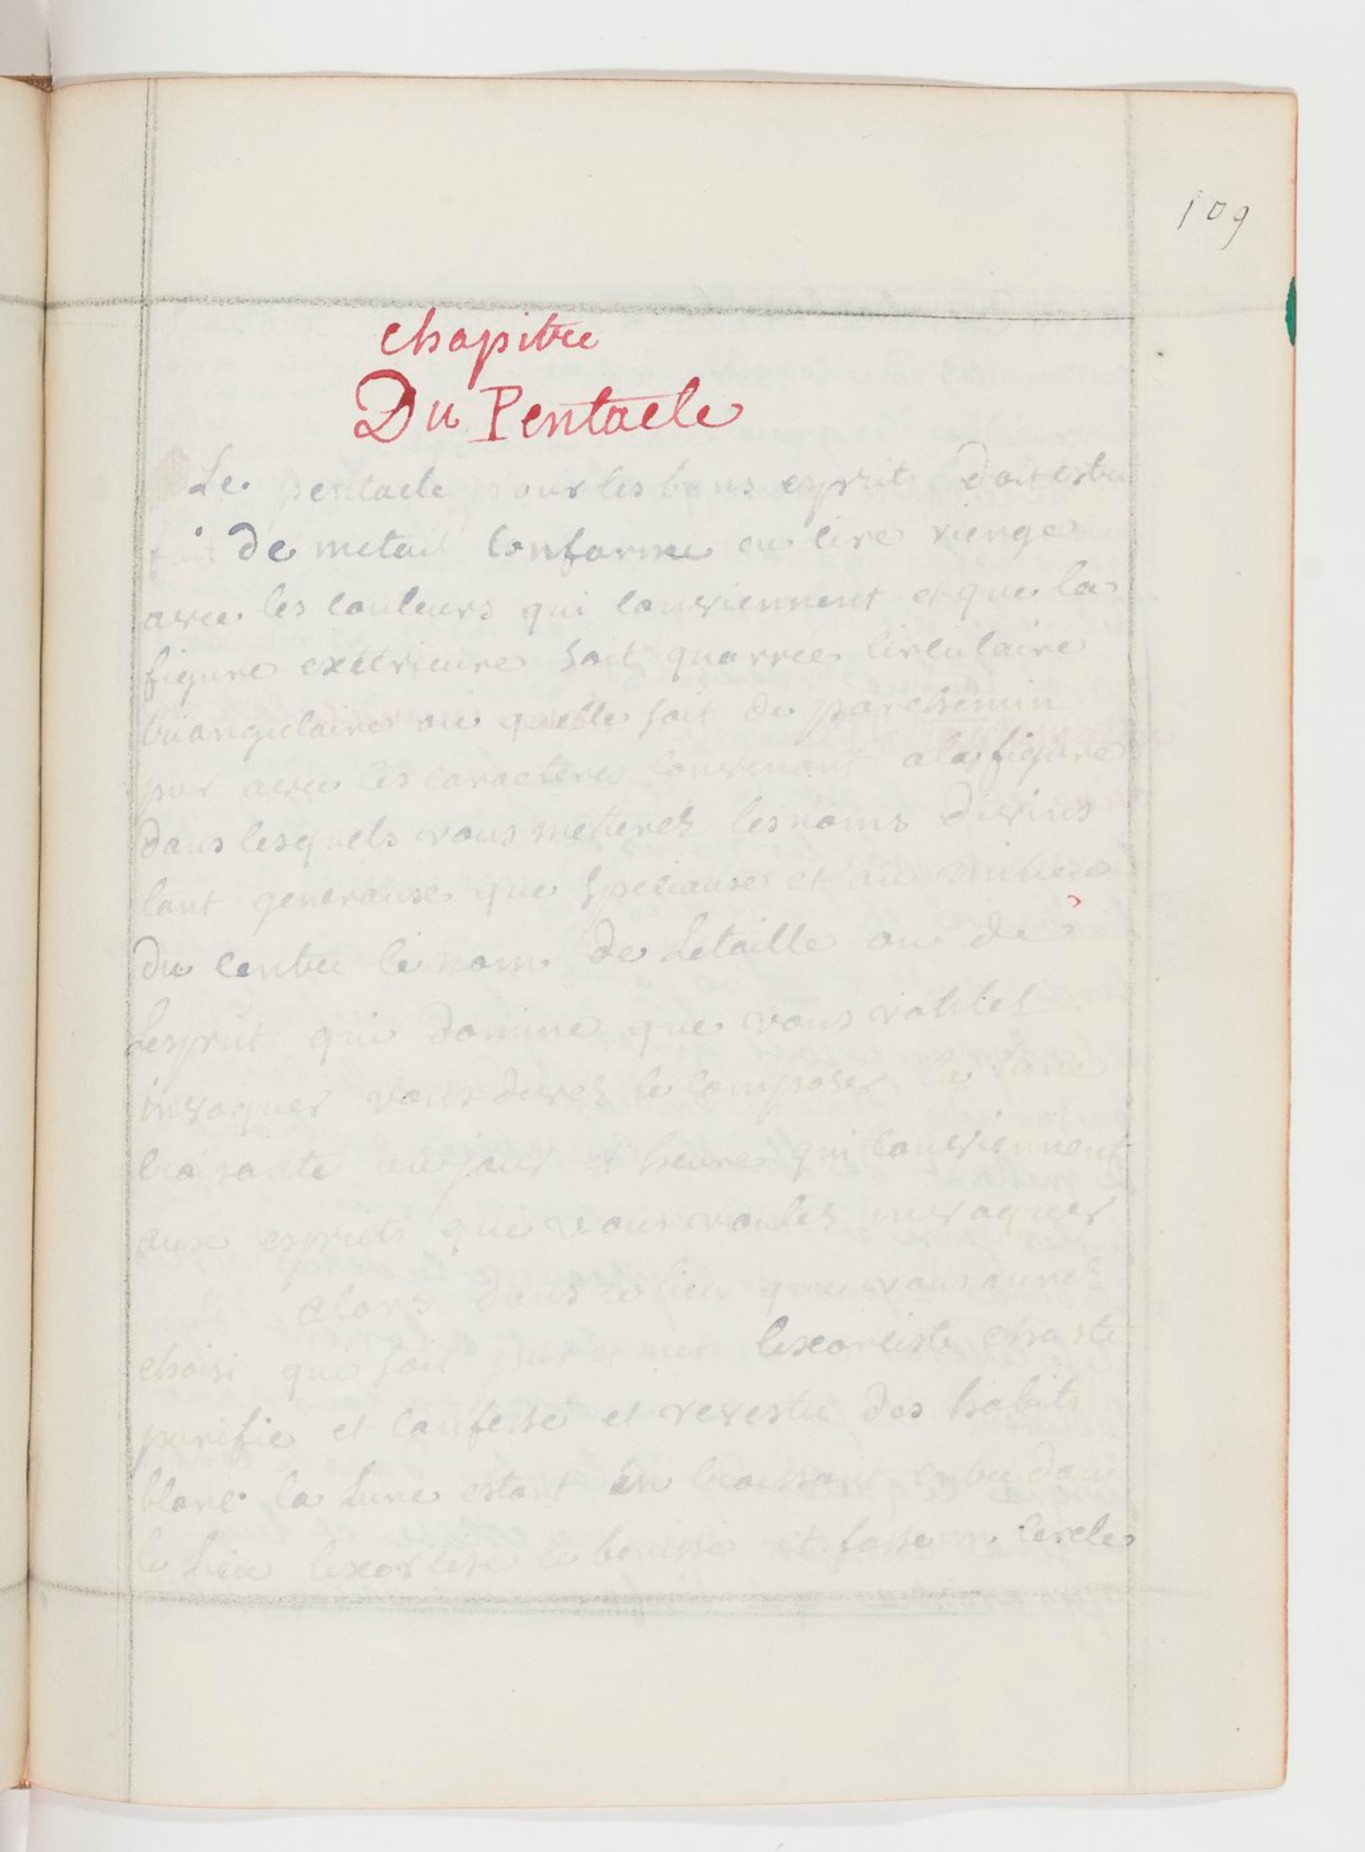 109
chapitre
Du Pentacle
Le pentacle pour les bons esprits doit estre
fait de metail conforme ou cire vierge
avec les couleurs qui conviennent et que la
figure exterieure soit quarrée circulaire
triangulaire ou quelle soit de parchemin
pur avec les caracteres convenant a la figure
dans lesquels vous metterez les noms divins
tant generause que speciause et au milieu
du centre le nom de Letoille ou de
Lesprit qui domine que vous voulez
invoquer vous devez le composer la lune
croisante au jour et heure qui conviennent
aux esprits que vous voulez invoquer
alors dans le lieu que vous aurez
choisi qui soit pur et lexorciste chaste
purifie et confessé et revestu des habits
blanc la Lune estant en croissant entre dans
le Lieu lexorcise le benisse et fasse un cercle